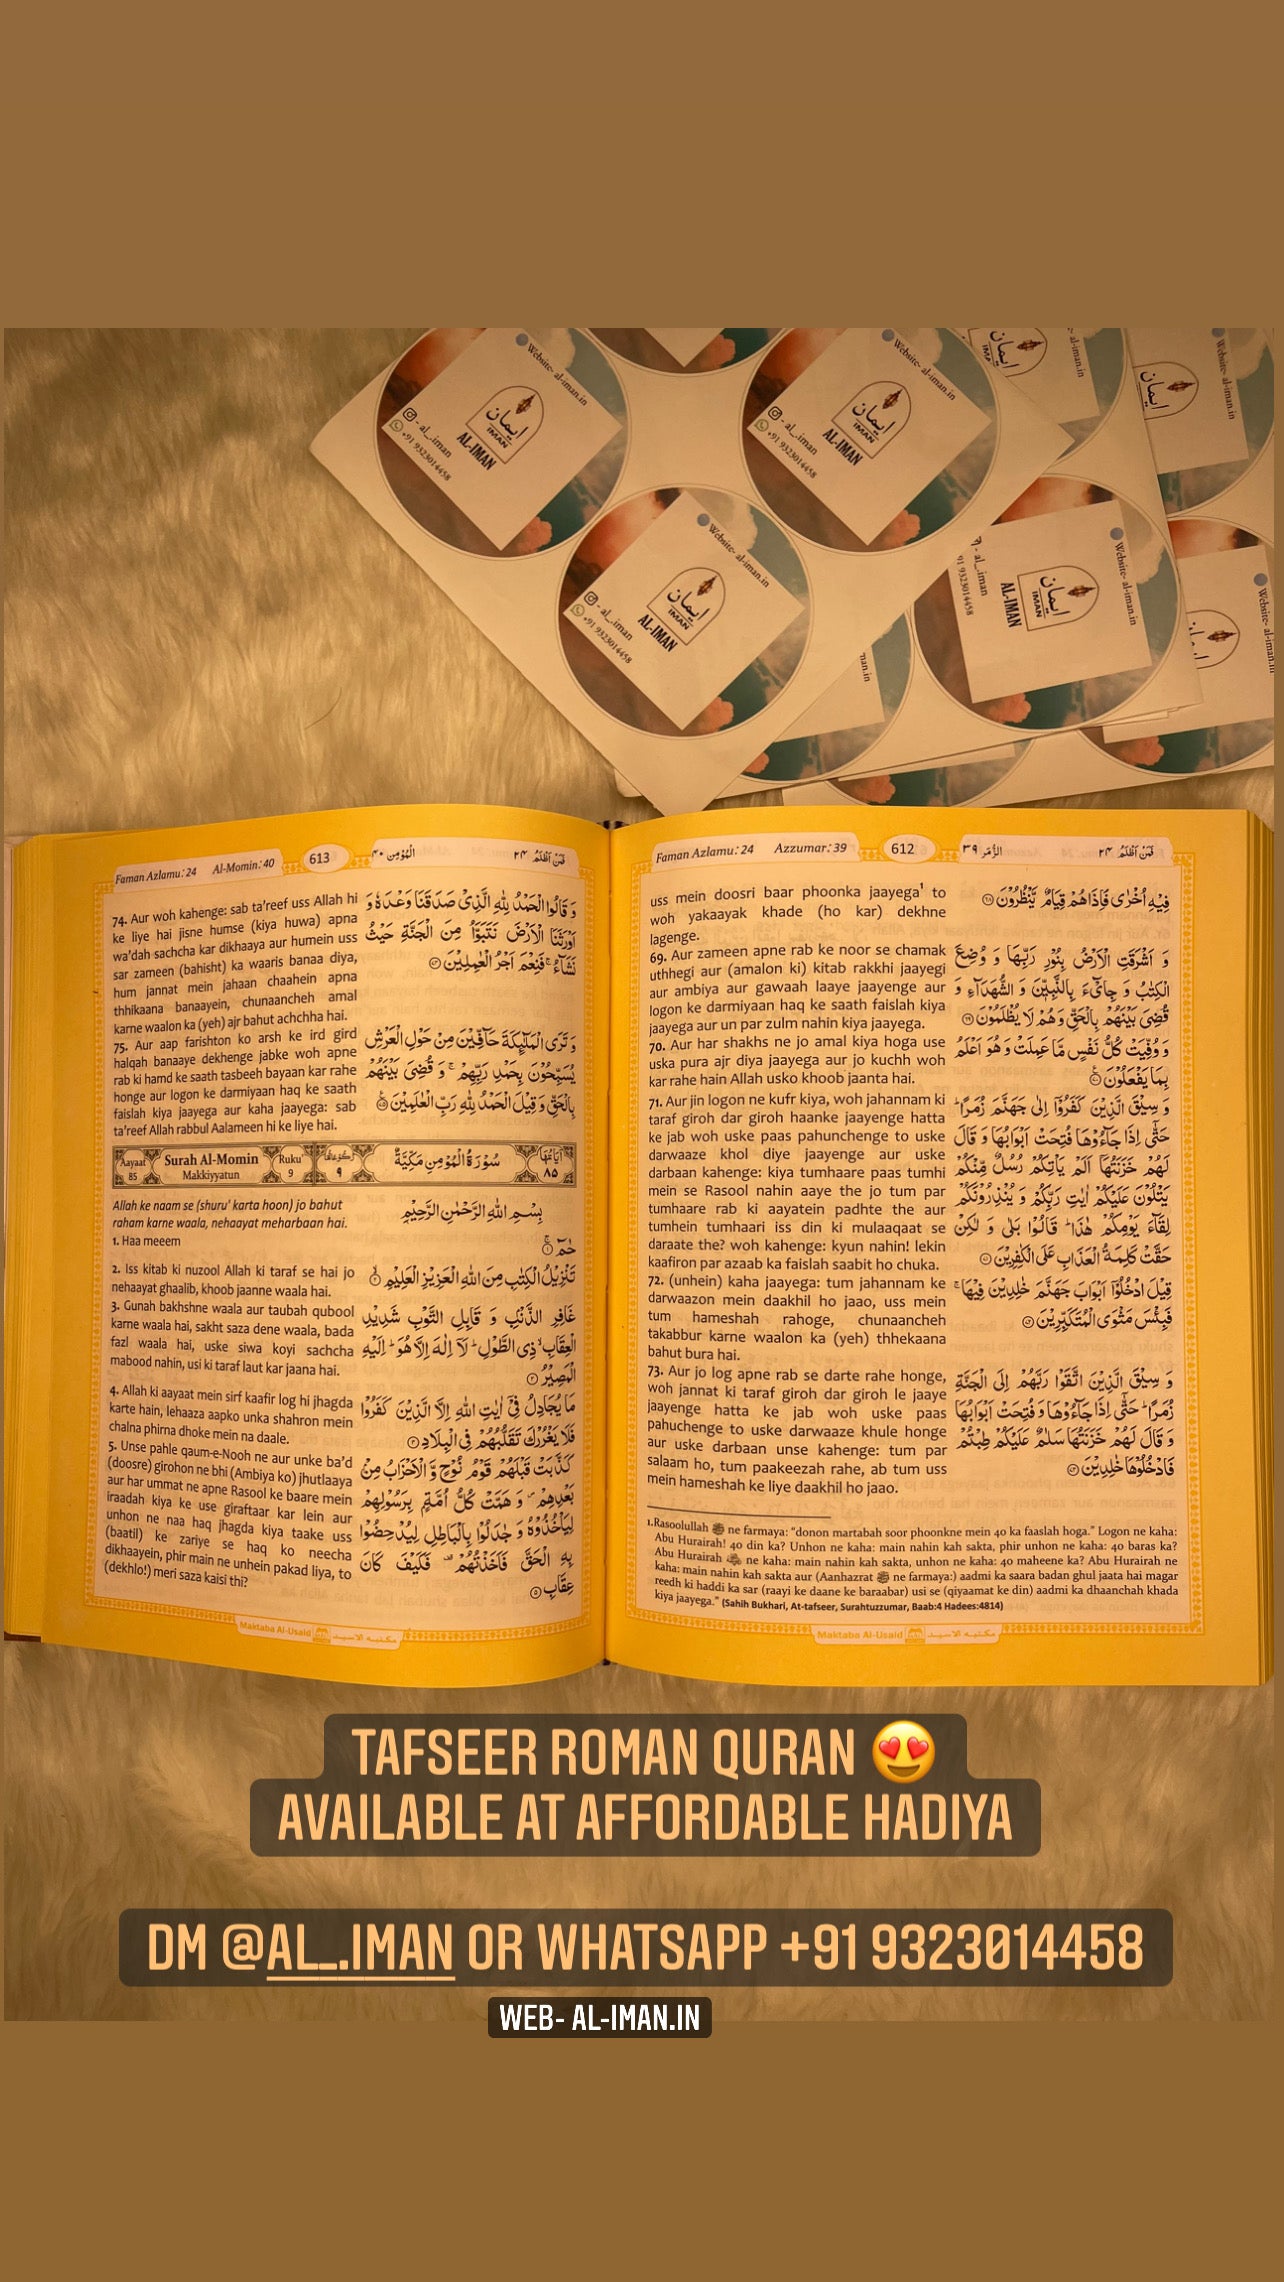 Website- al-iman.in
ایمان
IMAN
AL-IMAN
- al_.iman
+91 9323014458
Website- al-iman.in
ایمان
IMAN
AL-IMAN
- al_.iman
+91 9323014458
Website- al-iman.in
ایمان
IMAN
AL-IMAN
- al_.iman
+91 9323014458
Website- al-iman.in
ایمان
IMAN
AL-IMAN
- al_.iman
91 9323014458
Faman Azlamu: 24 Azzumar: 39 612 الزُّمَر ٣٩ فَمَنْ اَظْلَمُ ٢٤
uss mein doosri baar phoonka jaayega¹ to
woh yakaayak khade (ho kar) dekhne
lagenge.
69. Aur zameen apne rab ke noor se chamak
uthhegi aur (amalon ki) kitab rakkhi jaayegi
aur ambiya aur gawaah laaye jaayenge aur
logon ke darmiyaan haq ke saath faislah kiya
jaayega aur un par zulm nahin kiya jaayega.
70. Aur har shakhs ne jo amal kiya hoga use
uska pura ajr diya jaayega aur jo kuchh woh
kar rahe hain Allah usko khoob jaanta hai.
71. Aur jin logon ne kufr kiya, woh jahannam ki
taraf giroh dar giroh haanke jaayenge hatta
ke jab woh uske paas pahunchenge to uske
darwaaze khol diye jaayenge aur uske
darbaan kahenge: kiya tumhaare paas tumhi
mein se Rasool nahin aaye the jo tum par
tumhaare rab ki aayatein padhte the aur
tumhein tumhaari iss din ki mulaaqaat se
daraate the? woh kahenge: kyun nahin! lekin
kaafiron par azaab ka faislah saabit ho chuka.
72. (unhein) kaha jaayega: tum jahannam ke
darwaazon mein daakhil ho jaao, uss mein
tum hameshah rahoge, chunaancheh
takabbur karne waalon ka (yeh) thhekaana
bahut bura hai.
73. Aur jo log apne rab se darte rahe honge,
woh jannat ki taraf giroh dar giroh le jaaye
jaayenge hatta ke jab woh uske paas
pahuchenge to uske darwaaze khule honge
aur uske darbaan unse kahenge: tum par
salaam ho, tum paakeezah rahe, ab tum uss
mein hameshah ke liye daakhil ho jaao.
فِيْهِ اُخْرٰى فَاِذَا هُمْ قِيَامٌ يَّنْظُرُوْنَ ۝٦٨
وَ اَشْرَقَتِ الْاَرْضُ بِنُوْرِ رَبِّهَا وَ وُضِعَ
الْكِتٰبُ وَ جِايْٓءَ بِالنَّبِيّٖنَ وَ الشُّهَدَآءِ وَ
قُضِيَ بَيْنَهُمْ بِالْحَقِّ وَ هُمْ لَا يُظْلَمُوْنَ ۝٦٩
وَ وُفِّيَتْ كُلُّ نَفْسٍ مَّا عَمِلَتْ وَ هُوَ اَعْلَمُ
بِمَا يَفْعَلُوْنَ ۝٧٠
وَ سِيْقَ الَّذِيْنَ كَفَرُوْۤا اِلٰى جَهَنَّمَ زُمَرًا ؕ
حَتّٰۤى اِذَا جَآءُوْهَا فُتِحَتْ اَبْوَابُهَا وَ قَالَ
لَهُمْ خَزَنَتُهَاۤ اَلَمْ يَاْتِكُمْ رُسُلٌ مِّنْكُمْ
يَتْلُوْنَ عَلَيْكُمْ اٰيٰتِ رَبِّكُمْ وَ يُنْذِرُوْنَكُمْ
لِقَآءَ يَوْمِكُمْ هٰذَا ؕ قَالُوْا بَلٰى وَ لٰكِنْ
حَقَّتْ كَلِمَةُ الْعَذَابِ عَلَى الْكٰفِرِيْنَ ۝٧١
قِيْلَ ادْخُلُوْۤا اَبْوَابَ جَهَنَّمَ خٰلِدِيْنَ فِيْهَا ۚ
فَبِئْسَ مَثْوَى الْمُتَكَبِّرِيْنَ ۝٧٢
وَ سِيْقَ الَّذِيْنَ اتَّقَوْا رَبَّهُمْ اِلَى الْجَنَّةِ
زُمَرًا ؕ حَتّٰۤى اِذَا جَآءُوْهَا وَ فُتِحَتْ اَبْوَابُهَا
وَ قَالَ لَهُمْ خَزَنَتُهَا سَلٰمٌ عَلَيْكُمْ طِبْتُمْ
فَادْخُلُوْهَا خٰلِدِيْنَ ۝٧٣
1.Rasoolullah ﷺ ne farmaya: “donon martabah soor phoonkne mein 40 ka faaslah hoga.” Logon ne kaha:
Abu Hurairah! 40 din ka? Unhon ne kaha: main nahin kah sakta, phir unhon ne kaha: 40 baras ka?
Abu Hurairah ne kaha: main nahin kah sakta, unhon ne kaha: 40 maheene ka? Abu Hurairah ne
kaha: main nahin kah sakta aur (Aanhazrat ﷺ ne farmaya:) aadmi ka saara badan ghul jaata hai magar
reedh ki haddi ka sar (raayi ke daane ke baraabar) usi se (qiyaamat ke din) aadmi ka dhaanchah khada
kiya jaayega.” (Sahih Bukhari, At-tafseer, Surahtuzzumar, Baab:4 Hadees:4814)
Maktaba Al-Usaid مکتبه الاسید
Faman Azlamu: 24 Al-Momin: 40 613 الْمُؤْمِن ٤٠ فَمَنْ اَظْلَمُ ٢٤
74. Aur woh kahenge: sab ta’reef uss Allah hi
ke liye hai jisne humse (kiya huwa) apna
wa’dah sachcha kar dikhaaya aur humein uss
sar zameen (bahisht) ka waaris banaa diya,
hum jannat mein jahaan chaahein apna
thhikaana banaayein, chunaancheh amal
karne waalon ka (yeh) ajr bahut achchha hai.
75. Aur aap farishton ko arsh ke ird gird
halqah banaaye dekhenge jabke woh apne
rab ki hamd ke saath tasbeeh bayaan kar rahe
honge aur logon ke darmiyaan haq ke saath
faislah kiya jaayega aur kaha jaayega: sab
ta’reef Allah rabbul Aalameen hi ke liye hai.
وَ قَالُوا الْحَمْدُ لِلّٰهِ الَّذِيْ صَدَقَنَا وَعْدَهٗ وَ
اَوْرَثَنَا الْاَرْضَ نَتَبَوَّاُ مِنَ الْجَنَّةِ حَيْثُ
نَشَآءُ ۚ فَنِعْمَ اَجْرُ الْعٰمِلِيْنَ ۝٧٤
وَ تَرَى الْمَلٰٓىِٕكَةَ حَآفِّيْنَ مِنْ حَوْلِ الْعَرْشِ
يُسَبِّحُوْنَ بِحَمْدِ رَبِّهِمْ ۚ وَ قُضِيَ بَيْنَهُمْ
بِالْحَقِّ وَ قِيْلَ الْحَمْدُ لِلّٰهِ رَبِّ الْعٰلَمِيْنَ ۝٧٥
Aayaat 85 Surah Al-Momin Makkiyyatun Ruku’ 9 رُكُوْعَاتُهَا ٩ سُوْرَةُ الْمُؤْمِنِ مَكِّيَّةٌ اٰيَاتُهَا ٨٥
Allah ke naam se (shuru’ karta hoon) jo bahut
raham karne waala, nehaayat meharbaan hai.
1. Haa meeem
2. Iss kitab ki nuzool Allah ki taraf se hai jo
nehaayat ghaalib, khoob jaanne waala hai.
3. Gunah bakhshne waala aur taubah qubool
karne waala hai, sakht saza dene waala, bada
fazl waala hai, uske siwa koyi sachcha
mabood nahin, usi ki taraf laut kar jaana hai.
4. Allah ki aayaat mein sirf kaafir log hi jhagda
karte hain, lehaaza aapko unka shahron mein
chalna phirna dhoke mein na daale.
5. Unse pahle qaum-e-Nooh ne aur unke ba’d
(doosre) girohon ne bhi (Ambiya ko) jhutlaaya
aur har ummat ne apne Rasool ke baare mein
iraadah kiya ke use giraftaar kar lein aur
unhon ne naa haq jhagda kiya taake uss
(baatil) ke zariye se haq ko neecha
dikhaayein, phir main ne unhein pakad liya, to
(dekhlo!) meri saza kaisi thi?
بِسْمِ اللّٰهِ الرَّحْمٰنِ الرَّحِيْمِ
حٰمٓ ۝١
تَنْزِيْلُ الْكِتٰبِ مِنَ اللّٰهِ الْعَزِيْزِ الْعَلِيْمِ ۝٢
غَافِرِ الذَّنْۢبِ وَ قَابِلِ التَّوْبِ شَدِيْدِ
الْعِقَابِ ۙ ذِي الطَّوْلِ ؕ لَاۤ اِلٰهَ اِلَّا هُوَ ؕ اِلَيْهِ
الْمَصِيْرُ ۝٣
مَا يُجَادِلُ فِيْۤ اٰيٰتِ اللّٰهِ اِلَّا الَّذِيْنَ كَفَرُوْا
فَلَا يَغْرُرْكَ تَقَلُّبُهُمْ فِي الْبِلَادِ ۝٤
كَذَّبَتْ قَبْلَهُمْ قَوْمُ نُوْحٍ وَّ الْاَحْزَابُ مِنْۢ
بَعْدِهِمْ ۪ وَ هَمَّتْ كُلُّ اُمَّةٍۭ بِرَسُوْلِهِمْ
لِيَاْخُذُوْهُ وَ جٰدَلُوْا بِالْبَاطِلِ لِيُدْحِضُوْا
بِهِ الْحَقَّ فَاَخَذْتُهُمْ ۫ فَكَيْفَ كَانَ
عِقَابِ ۝٥
Maktaba Al-Usaid مکتبه الاسید
TAFSEER ROMAN QURAN 😍
AVAILABLE AT AFFORDABLE HADIYA
DM @AL_.IMAN OR WHATSAPP +91 9323014458
WEB- AL-IMAN.IN